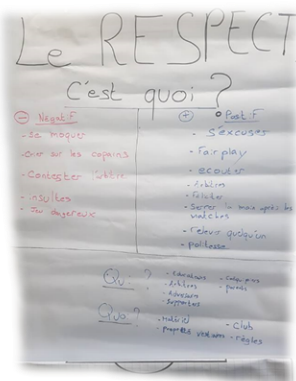 Le RESPECT
C'est quoi ?
⊖ Négatif
- se moquer
- Crier sur les copains
- Contester l'arbitre
- insultes
- Jeu dangereux
⊕ Positif
- S'excuser
- Fair play
- écouter
- Arbitres
- féliciter
- Serrer la main après les matches
- relever quelqu'un
- politesse
Qui ?
- Educateurs
- Arbitres
- Adversaires
- Supporters
- Coéquipiers
- parents
Quoi ?
- Matériel
- propreté vestiaires
- Club
- règles